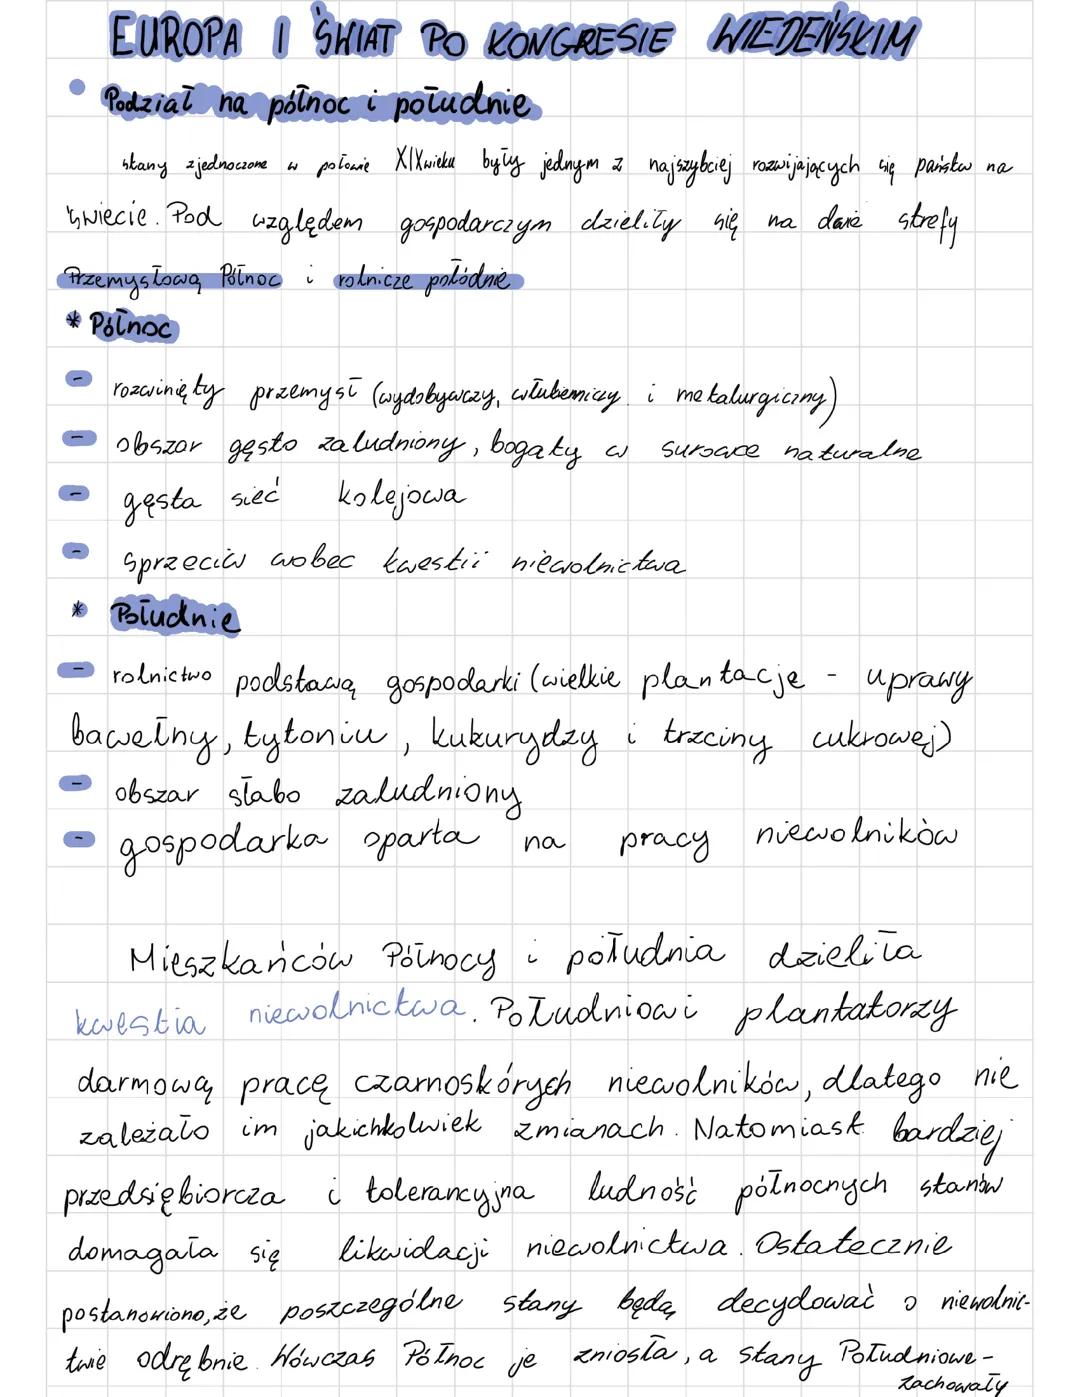 EUROPA I ŚWIAT PO KONGRESIE WIEDEŃSKIM
• Podział na północ i południe
stany zjednoczone w połowie XIX wieku były jednym z najszybciej rozwijających się państw na
świecie. Pod względem gospodarczym dzieliły się na dwie strefy
Przemysłową Północ i rolnicze połódnie
* Północ
- rozwinięty przemysł (wydobywczy, włukienniczy i metalurgiczny)
- obszar gęsto zaludniony, bogaty w surowce naturalne
- gęsta sieć kolejowa
- sprzeciw wobec kwestii niewolnictwa
* Południe
- rolnictwo podstawą gospodarki (wielkie plantacje - uprawy
bawełny, tytoniu, kukurydzy i trzciny cukrowej)
- obszar słabo zaludniony
- gospodarka oparta na pracy niewolników
Mieszkańców Północy i południa dzieliła
kwestia niewolnictwa. Południowi plantatorzy
darmową pracę czarnoskórych niewolników, dlatego nie
zależało im jakichkolwiek zmianach. Natomiast bardziej
przedsiębiorcza i tolerancyjna ludność północnych stanów
domagała się likwidacji niewolnictwa. Ostatecznie
postanowiono, że poszczególne stany będą decydować o niewolnic-
twie odrębnie. Wówczas Północ je zniosła, a stany Południowe-
zachowały